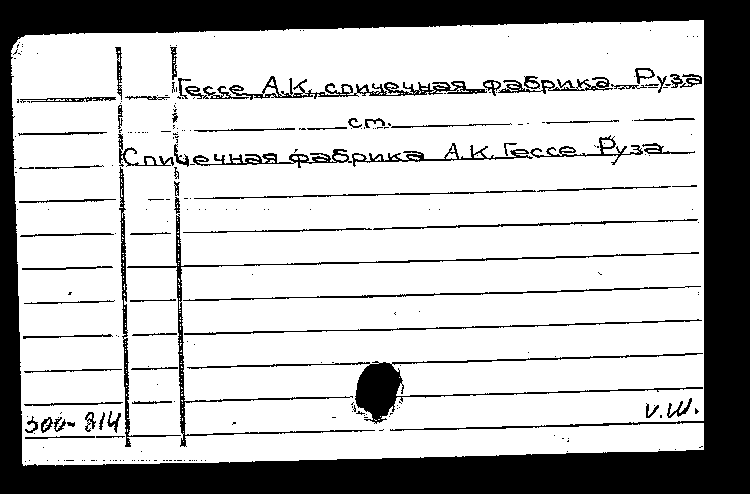 Гессе, А.К., спичечная фабрика. Руза
ст.
Спичечная фабрика А.К. Гессе. Руза.
300-814
И.Ш.